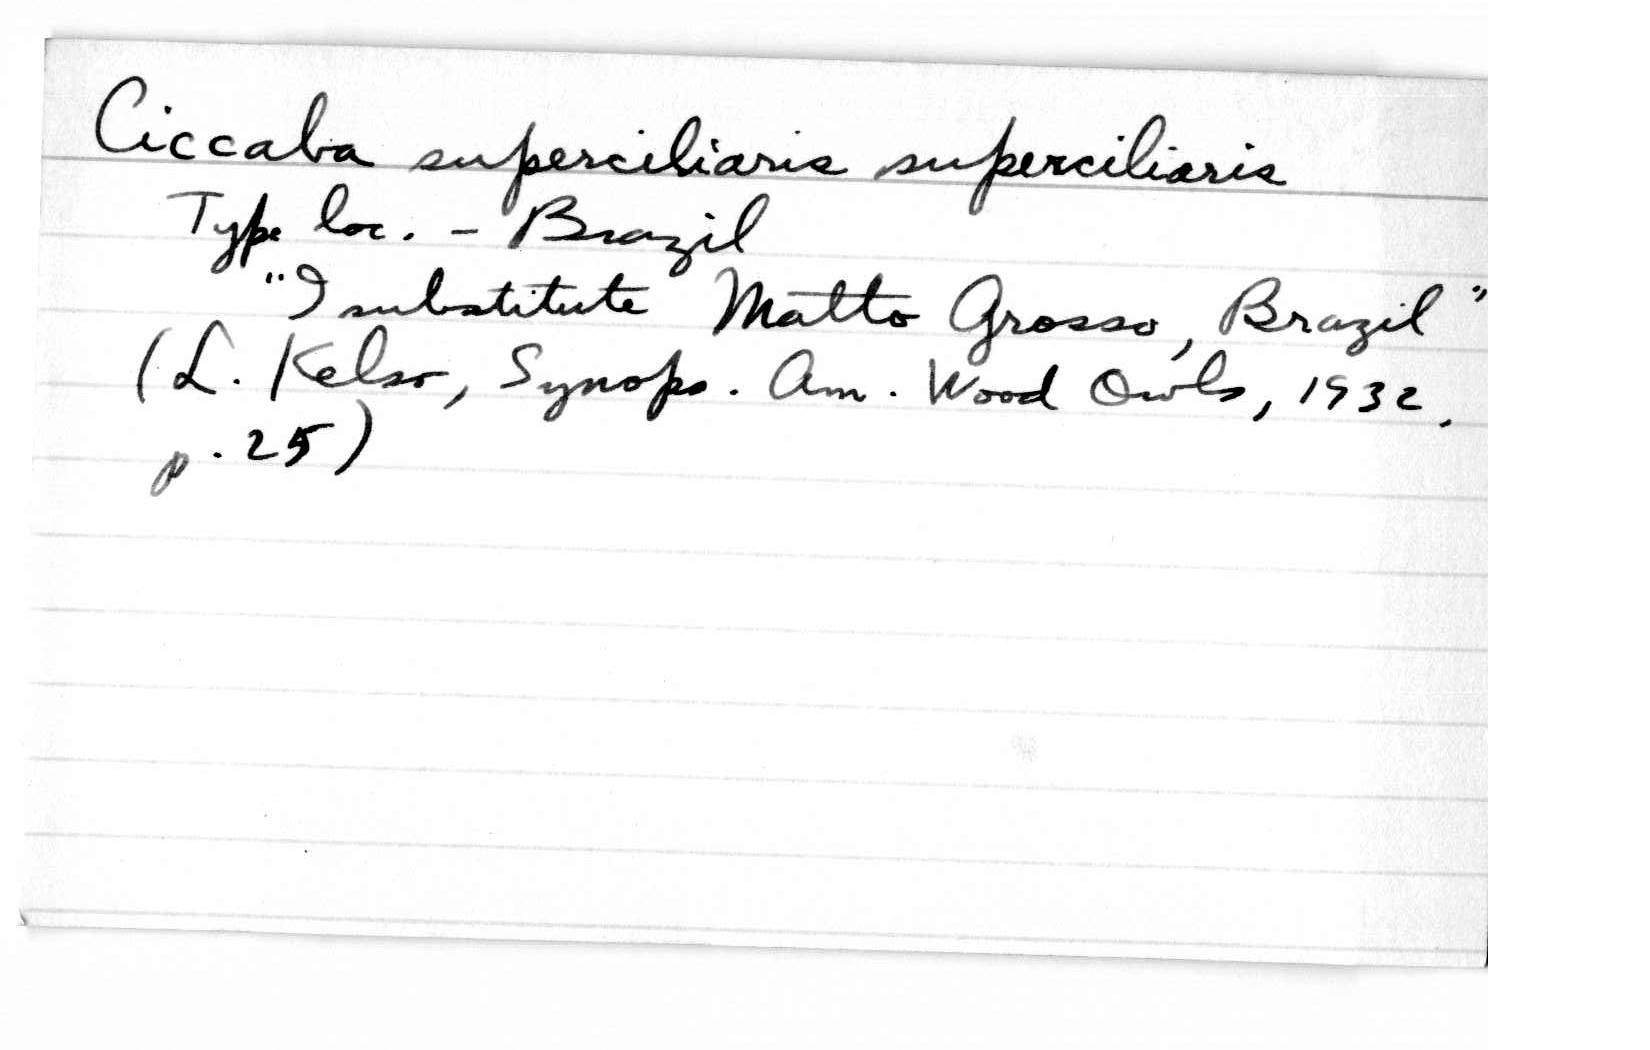 Ciccaba superciliaris superciliaris
Type loc. - Brazil
"I substitute Matto Grosso, Brazil"
(L. Kelso, Synops. Am. Wood Owls, 1932,
p. 25)